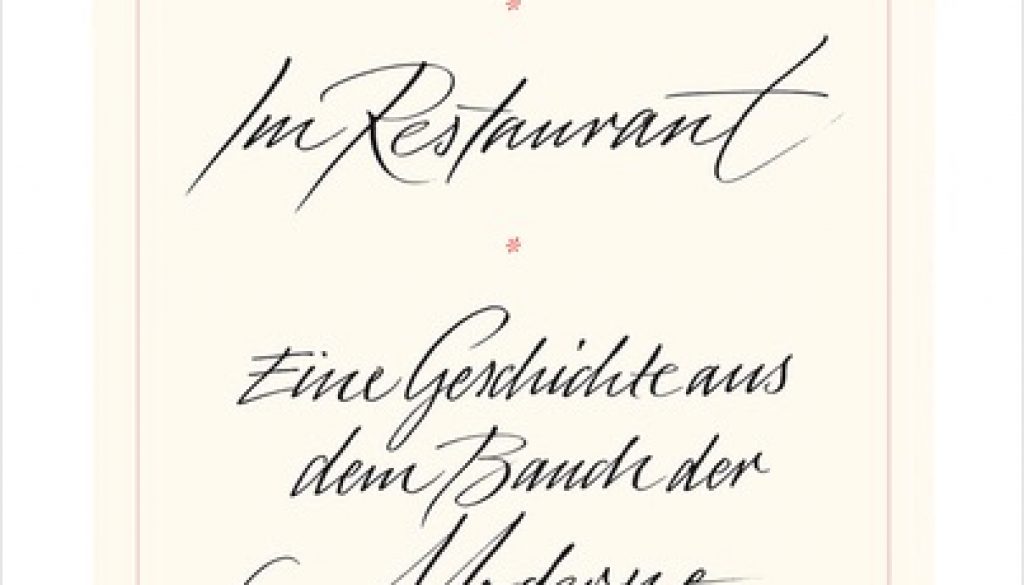 Im Restaurant
Eine Geschichte aus
dem Bauch der
Moderne